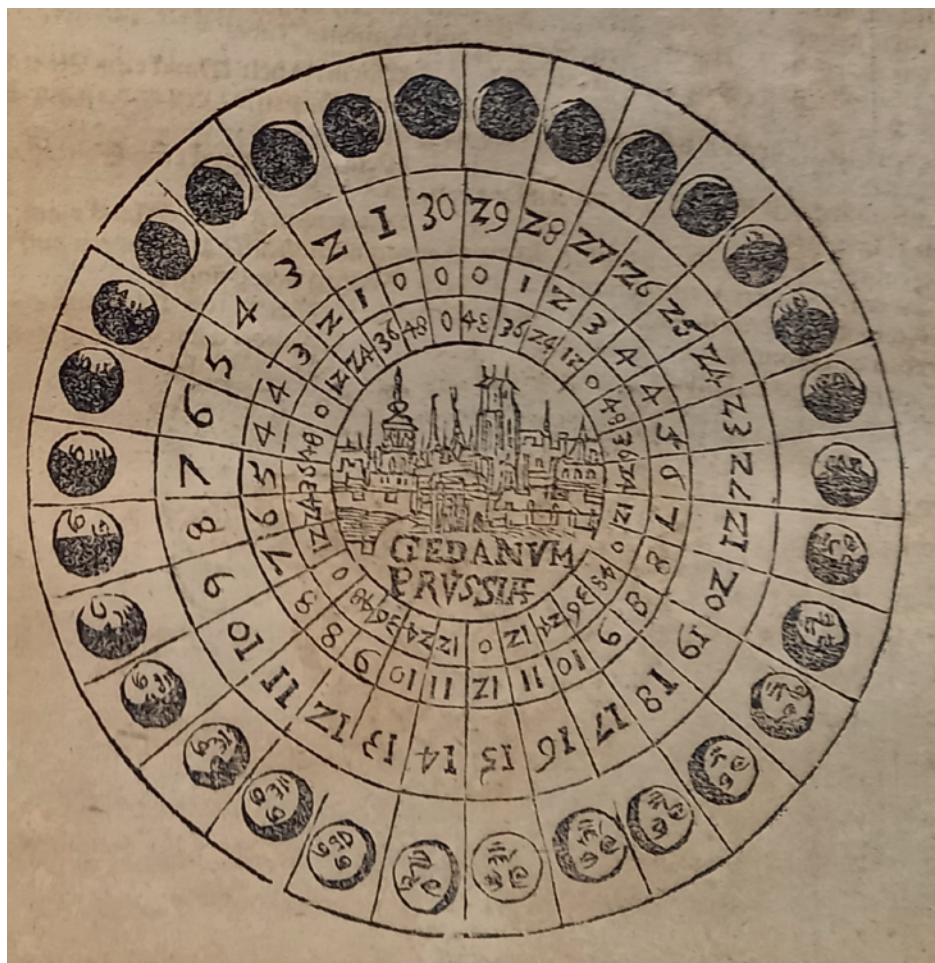 1 2 3 4 5 6 7 8 9 10 11 12 13 14 15 16 17 18 19 20 21 22 23 24 25 26 27 28 29 30
0 1 2 3 4 4 5 6 7 8 8 9 10 11 12 11 10 9 8 8 7 6 5 4 4 3 2 1 0 0
48 36 24 12 0 48 36 24 12 0 48 36 24 12 0 12 24 36 48 0 12 24 36 48 0 12 24 36 48 0
GEDANVM
PRVSSIÆ